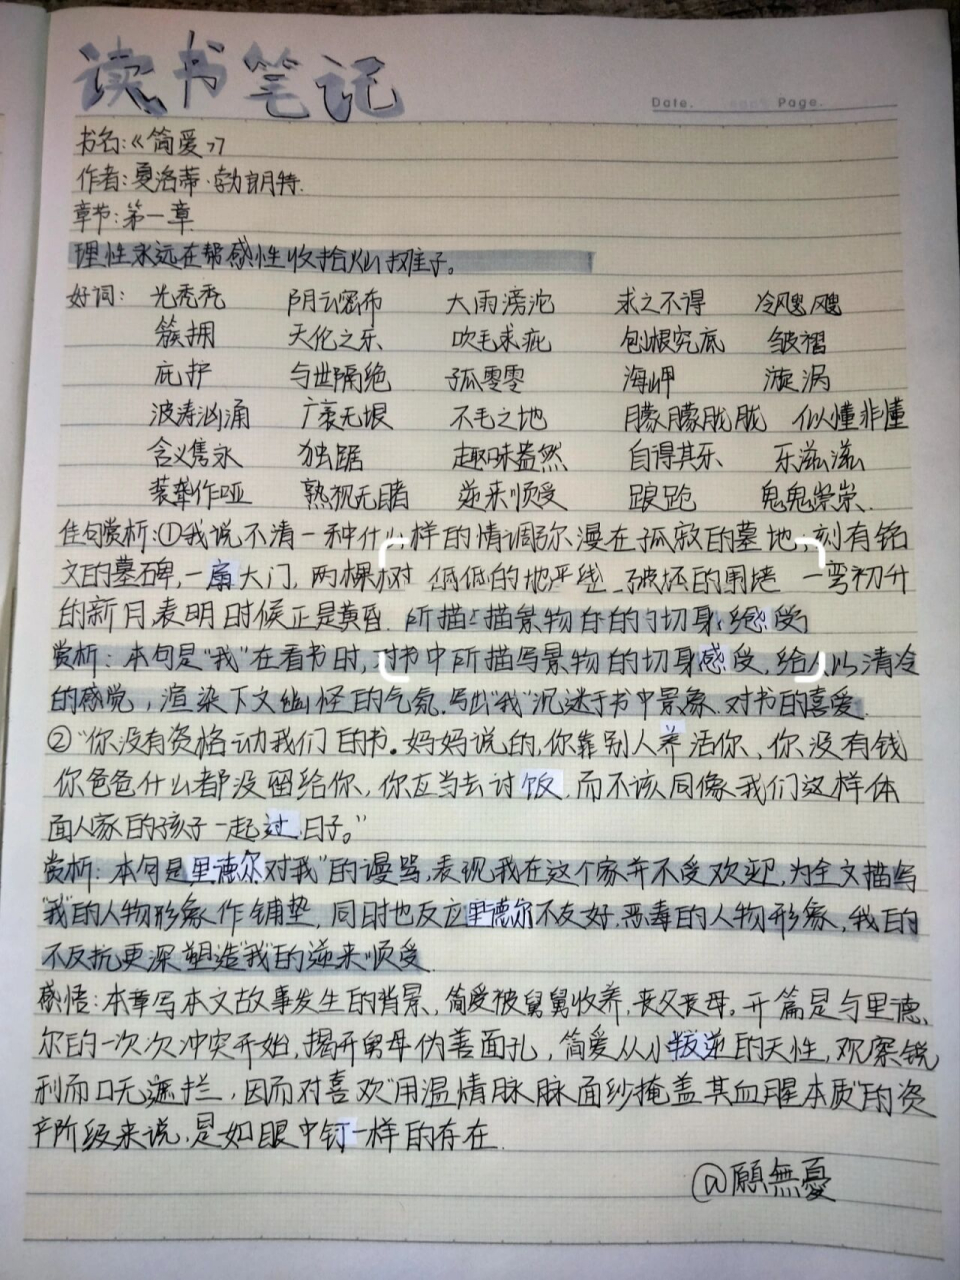 读书笔记
Date. Page.
书名:《简爱》
作者:夏洛蒂·勃朗特.
章节:第一章
理性永远在帮感性收拾烂摊子。
好词: 光秃秃 阴云密布 大雨滂沱 求之不得 冷飕飕
簇拥 天伦之乐 吹毛求疵 刨根究底 皱褶
庇护 与世隔绝 孤零零 海岬 漩涡
波涛汹涌 广袤无垠 不毛之地 朦朦胧胧 似懂非懂
含义隽永 独踞 趣味盎然 自得其乐 乐滋滋
装聋作哑 熟视无睹 逆来顺受 踉跄 鬼鬼祟祟.
佳句赏析:①我说不清一种什么样的情调弥漫在孤寂的墓地,刻有铭
文的墓碑,一扇大门,两棵树 低低的地平线 破坏的围墙 一弯初升
的新月,表明时候正是黄昏. 所描描景物的的切身感受
赏析:本句是“我”在看书时,对书中所描写景物的切身感受,给人以清冷
的感觉,渲染下文幽怪的气氛.写出“我”沉迷于书中景象.对书的喜爱.
②“你没有资格动我们的书。妈妈说的,你靠别人养活你、你没有钱
你爸爸什么都没留给你,你应当去讨饭,而不该同像我们这样体
面人家的孩子一起过日子。”
赏析:本句是里德尔对我”的谩骂,表现我在这个家并不受欢迎,为全文描写
“我”的人物形象作铺垫,同时也反应里德尔不友好,恶毒的人物形象,我的
不反抗更深塑造“我”的逆来顺受.
感悟:本章写本文故事发生的背景、简爱被舅舅收养,丧父丧母。开篇是与里德
尔的一次次冲突开始,揭开舅母伪善面孔,简爱从小叛逆的天性,观察锐
利而口无遮拦,因而对喜欢“用温情脉脉面纱掩盖其血腥本质”的资
产阶级来说,是如眼中钉一样的存在.
@願無憂